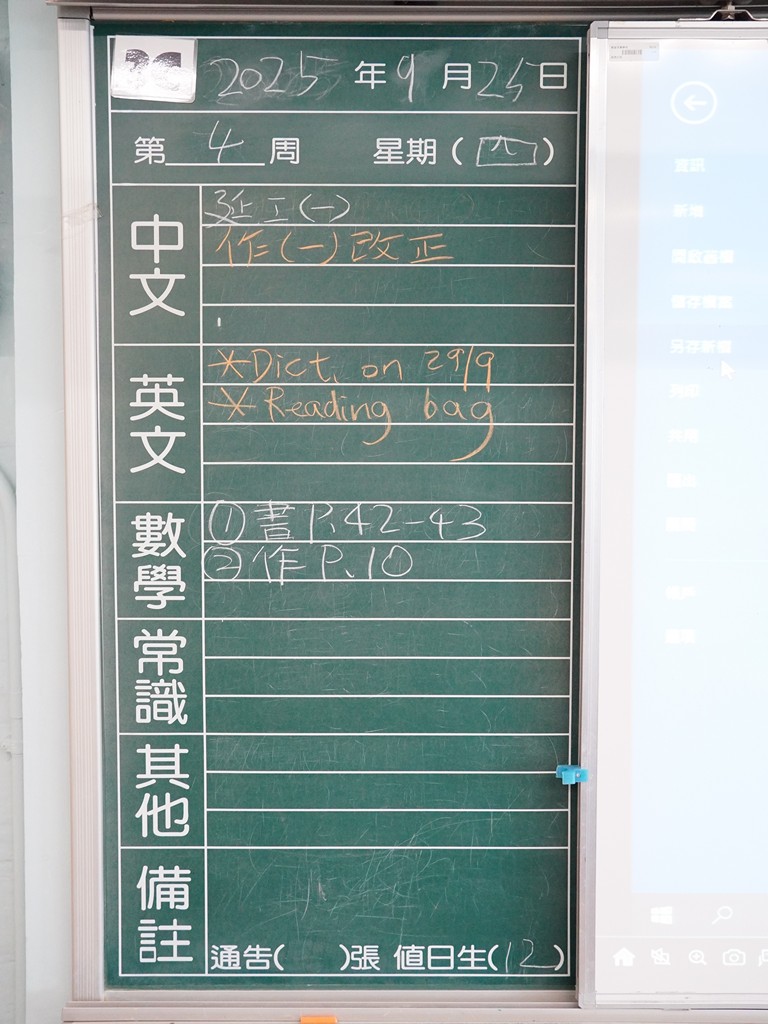 2025年9月25日
第4周 星期(四)
中文
延工(一)
作(一)改正
英文
*Dict. on 29/9
*Reading bag
數學
①書P.42-43
②作P.10
常識
其他
備註
通告( )張 值日生(12)
資訊
另存新檔
列印